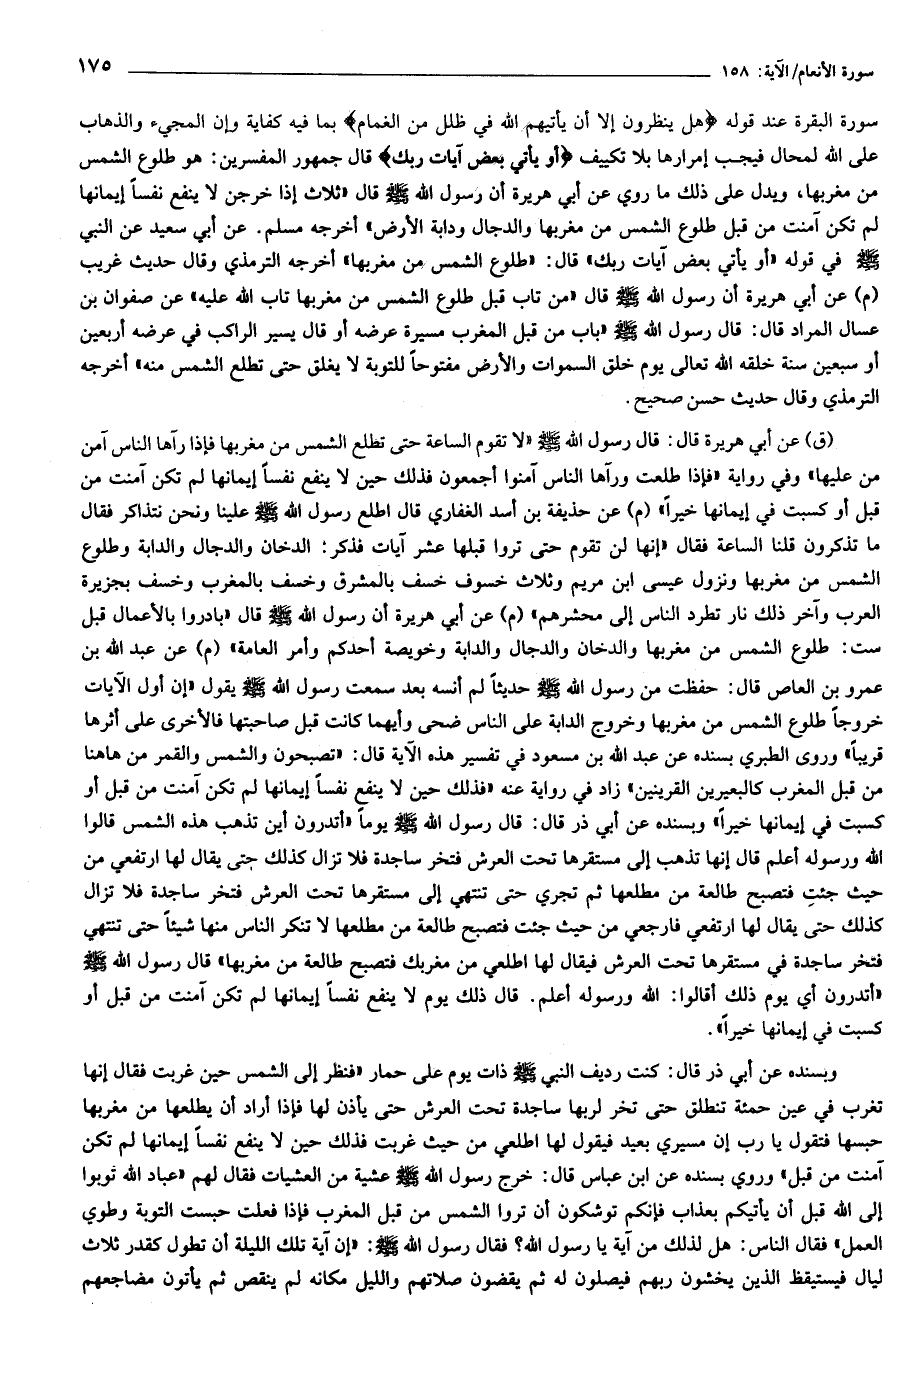 سورة الأنعام/ الآية: ١٥٨ ١٧٥
سورة البقرة عند قوله ﴿هل ينظرون إلا أن يأتيهم الله في ظلل من الغمام﴾ بما فيه كفاية وإن المجيء والذهاب
على الله لمحال فيجب إمرارها بلا تكييف ﴿أو يأتي بعض آيات ربك﴾ قال جمهور المفسرين: هو طلوع الشمس
من مغربها، ويدل على ذلك ما روي عن أبي هريرة أن رسول الله ﷺ قال «ثلاث إذا خرجن لا ينفع نفساً إيمانها
لم تكن آمنت من قبل طلوع الشمس من مغربها والدجال ودابة الأرض» أخرجه مسلم. عن أبي سعيد عن النبي
ﷺ في قوله «أو يأتي بعض آيات ربك» قال: «طلوع الشمس من مغربها» أخرجه الترمذي وقال حديث غريب
(م) عن أبي هريرة أن رسول الله ﷺ قال «من تاب قبل طلوع الشمس من مغربها تاب الله عليه» عن صفوان بن
عسال المراد قال: قال رسول الله ﷺ «باب من قبل المغرب مسيرة عرضه أو قال يسير الراكب في عرضه أربعين
أو سبعين سنة خلقه الله تعالى يوم خلق السموات والأرض مفتوحاً للتوبة لا يغلق حتى تطلع الشمس منه» أخرجه
الترمذي وقال حديث حسن صحيح.
(ق) عن أبي هريرة قال: قال رسول الله ﷺ «لا تقوم الساعة حتى تطلع الشمس من مغربها فإذا رآها الناس آمن
من عليها» وفي رواية «فإذا طلعت ورآها الناس آمنوا أجمعون فذلك حين لا ينفع نفساً إيمانها لم تكن آمنت من
قبل أو كسبت في إيمانها خيراً» (م) عن حذيفة بن أسد الغفاري قال اطلع رسول الله ﷺ علينا ونحن نتذاكر فقال
ما تذكرون قلنا الساعة فقال «إنها لن تقوم حتى تروا قبلها عشر آيات فذكر: الدخان والدجال والدابة وطلوع
الشمس من مغربها ونزول عيسى ابن مريم وثلاث خسوف خسف بالمشرق وخسف بالمغرب وخسف بجزيرة
العرب وآخر ذلك نار تطرد الناس إلى محشرهم» (م) عن أبي هريرة أن رسول الله ﷺ قال «بادروا بالأعمال قبل
ست: طلوع الشمس من مغربها والدخان والدجال والدابة وخويصة أحدكم وأمر العامة» (م) عن عبد الله بن
عمرو بن العاص قال: حفظت من رسول الله ﷺ حديثاً لم أنسه بعد سمعت رسول الله ﷺ يقول «إن أول الآيات
خروجاً طلوع الشمس من مغربها وخروج الدابة على الناس ضحى وأيهما كانت قبل صاحبتها فالأخرى على أثرها
قريباً» وروى الطبري بسنده عن عبد الله بن مسعود في تفسير هذه الآية قال: «تصبحون والشمس والقمر من هاهنا
من قبل المغرب كالبعيرين القرينين» زاد في رواية عنه «فذلك حين لا ينفع نفساً إيمانها لم تكن آمنت من قبل أو
كسبت في إيمانها خيراً» وبسنده عن أبي ذر قال: قال رسول الله ﷺ يوماً «أتدرون أين تذهب هذه الشمس قالوا
الله ورسوله أعلم قال إنها تذهب إلى مستقرها تحت العرش فتخر ساجدة فلا تزال كذلك حتى يقال لها ارتفعي من
حيث جئتِ فتصبح طالعة من مطلعها ثم تجري حتى تنتهي إلى مستقرها تحت العرش فتخر ساجدة فلا تزال
كذلك حتى يقال لها ارتفعي فارجعي من حيث جئت فتصبح طالعة من مطلعها لا تنكر الناس منها شيئاً حتى تنتهي
فتخر ساجدة في مستقرها تحت العرش فيقال لها اطلعي من مغربك فتصبح طالعة من مغربها» قال رسول الله ﷺ
«أتدرون أي يوم ذلك أقالوا: الله ورسوله أعلم. قال ذلك يوم لا ينفع نفساً إيمانها لم تكن آمنت من قبل أو
كسبت في إيمانها خيراً».
وبسنده عن أبي ذر قال: كنت رديف النبي ﷺ ذات يوم على حمار «فنظر إلى الشمس حين غربت فقال إنها
تغرب في عين حمئة تنطلق حتى تخر لربها ساجدة تحت العرش حتى يأذن لها فإذا أراد أن يطلعها من مغربها
حبسها فتقول يا رب إن مسيري بعيد فيقول لها اطلعي من حيث غربت فذلك حين لا ينفع نفساً إيمانها لم تكن
آمنت من قبل» وروي بسنده عن ابن عباس قال: خرج رسول الله ﷺ عشية من العشيات فقال لهم «عباد الله توبوا
إلى الله قبل أن يأتيكم بعذاب فإنكم توشكون أن تروا الشمس من قبل المغرب فإذا فعلت حبست التوبة وطوي
العمل» فقال الناس: هل لذلك من آية يا رسول الله؟ فقال رسول الله ﷺ: «إن آية تلك الليلة أن تطول كقدر ثلاث
ليال فيستيقظ الذين يخشون ربهم فيصلون له ثم يقضون صلاتهم والليل مكانه لم ينقص ثم يأتون مضاجعهم